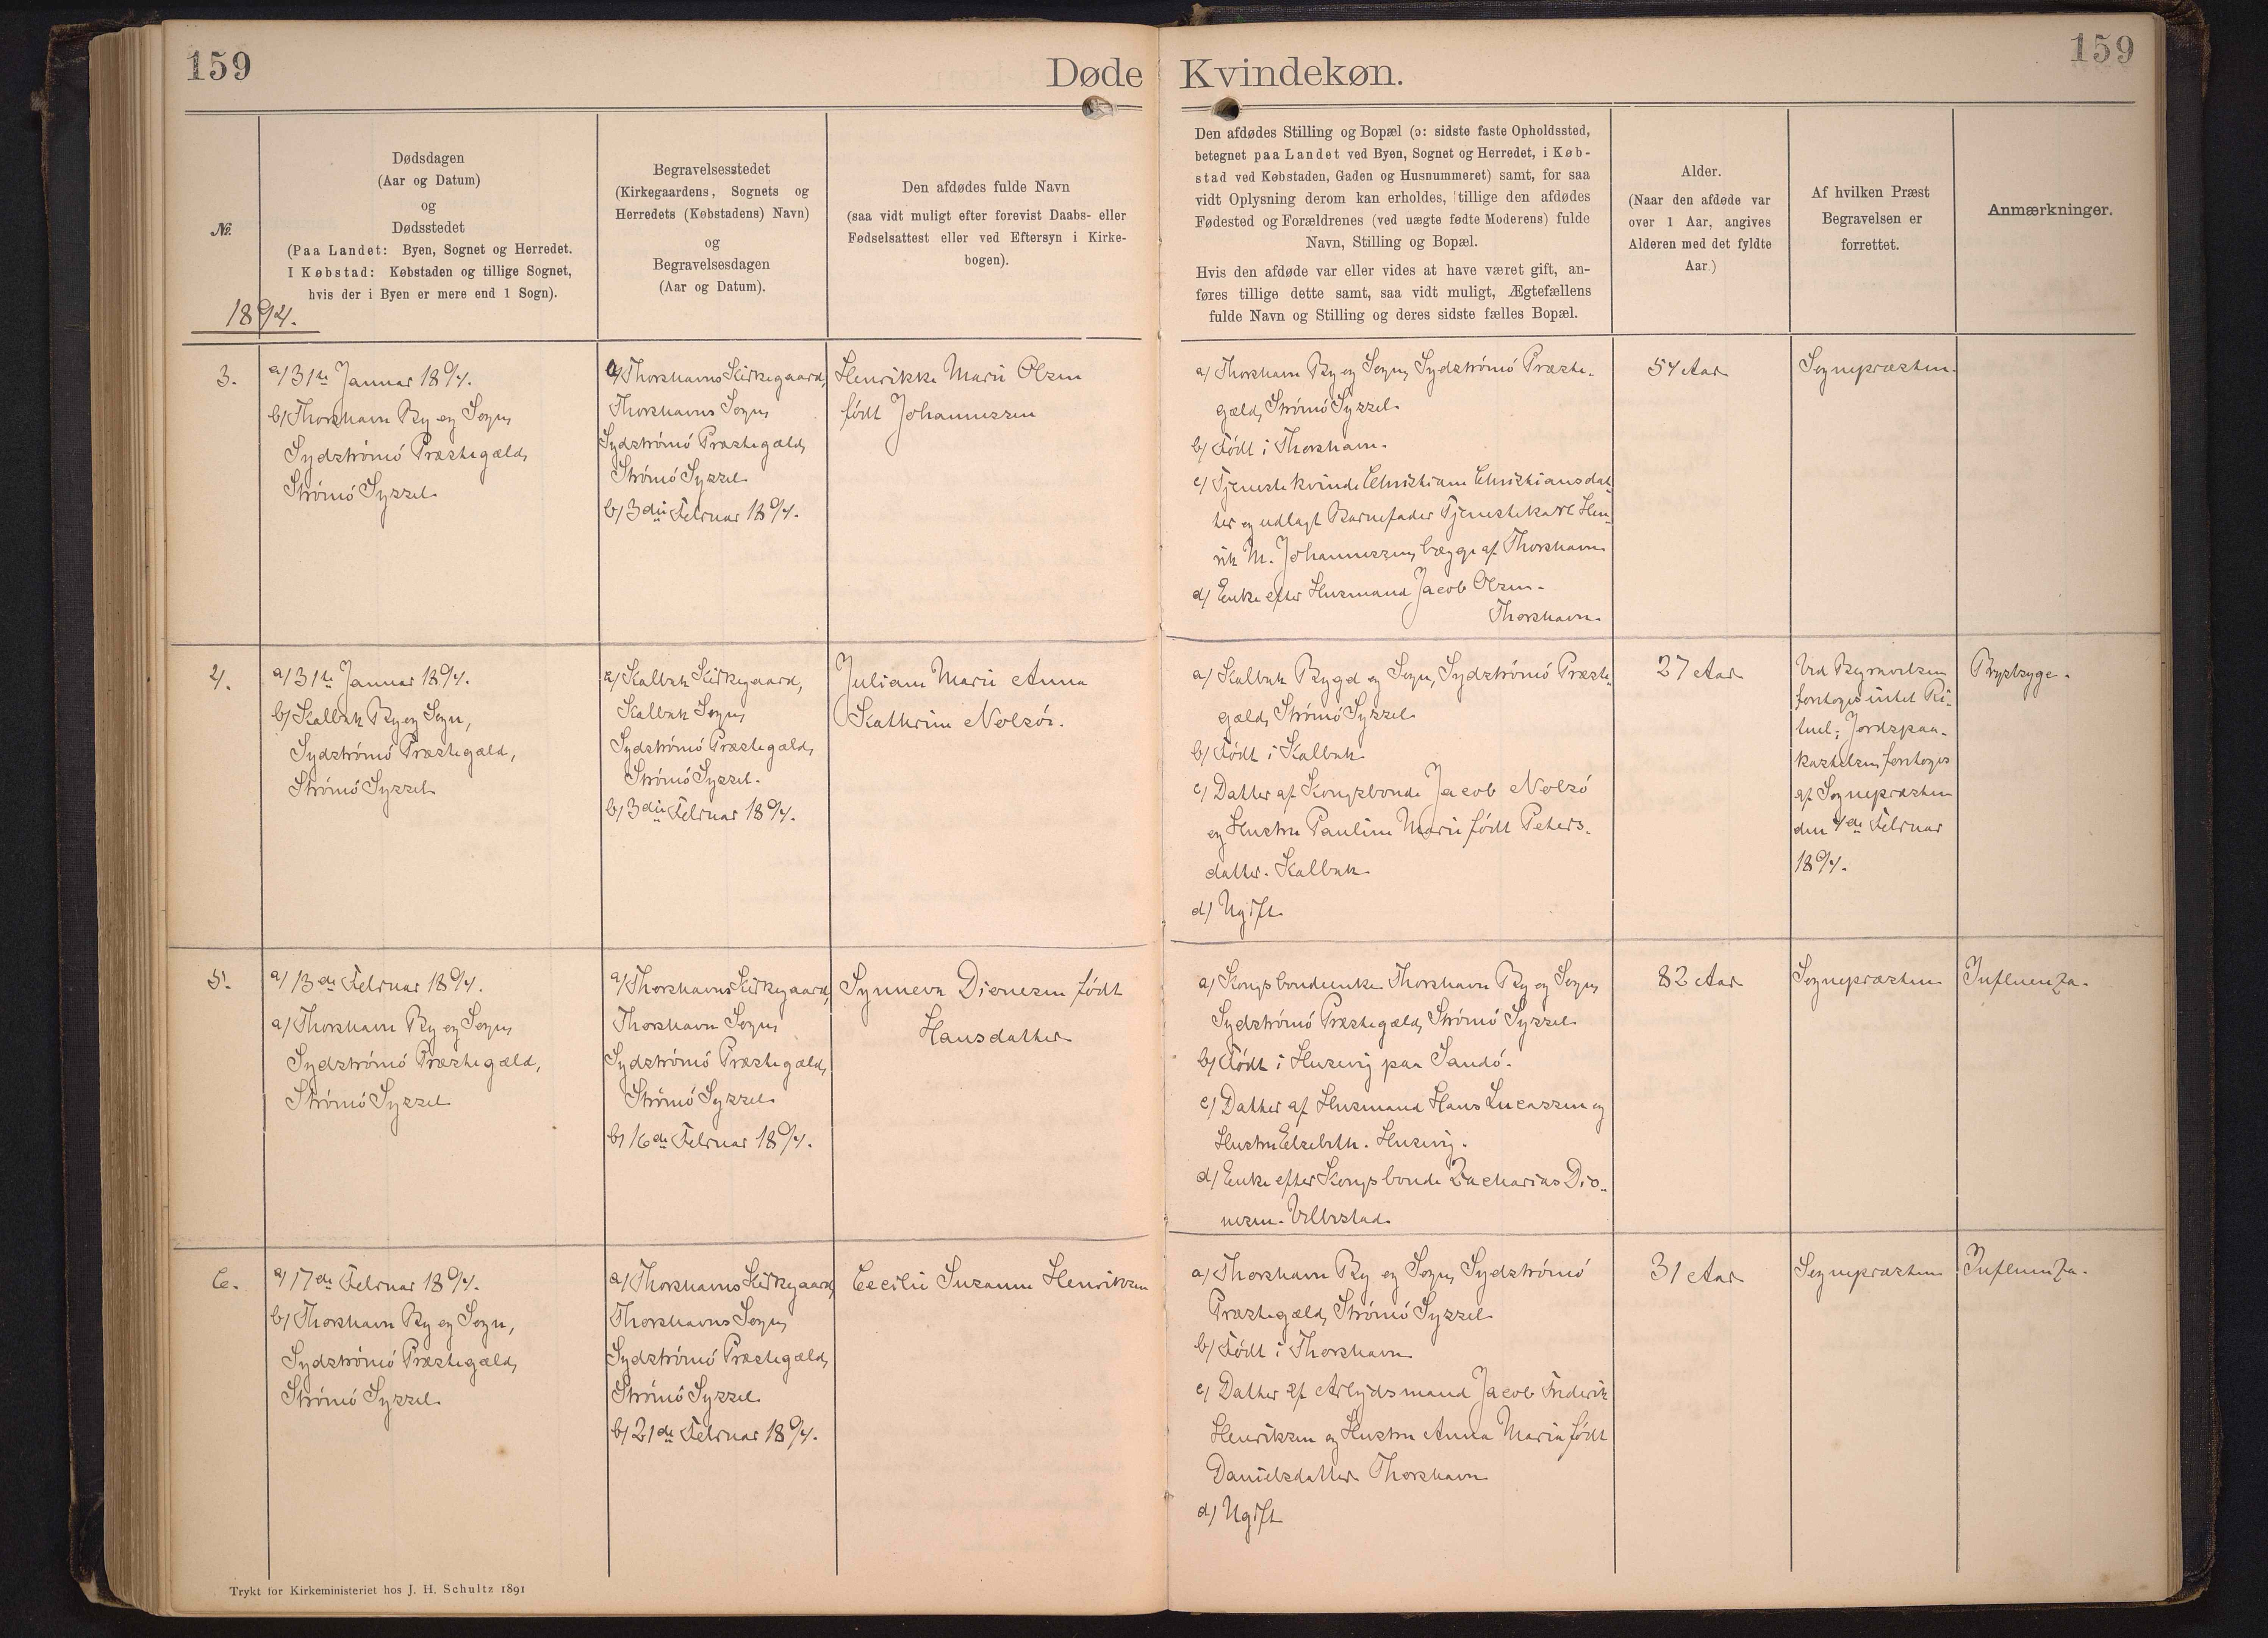 159
Døde Kvindekøn.
159
№.
Dødsdagen
(Aar og Datum)
og
Dødsstedet
(Paa Landet: Byen, Sognet og Herredet.
I Købstad: Købstaden og tillige Sognet,
hvis der i Byen er mere end 1 Sogn).
Begravelsesstedet
(Kirkegaardens, Sognets og
Herredets (Købstadens) Navn)
og
Begravelsesdagen
(Aar og Datum).
Den afdødes fulde Navn
(saa vidt muligt efter forevist Daabs- eller
Fødselsattest eller ved Eftersyn i Kirke-
bogen).
Den afdødes Stilling og Bopæl (ɔ: sidste faste Opholdssted,
betegnet paa Landet ved Byen, Sognet og Herredet, i Køb-
stad ved Købstaden, Gaden og Husnummeret) samt, for saa
vidt Oplysning derom kan erholdes, tillige den afdødes
Fødested og Forældrenes (ved uægte fødte Moderens) fulde
Navn, Stilling og Bopæl.
Hvis den afdøde var eller vides at have været gift, an-
føres tillige dette samt, saa vidt muligt, Ægtefællens
fulde Navn og Stilling og deres sidste fælles Bopæl.
Alder.
(Naar den afdøde var
over 1 Aar, angives
Alderen med det fyldte
Aar.)
Af hvilken Præst
Begravelsen er
forrettet.
Anmærkninger.
1894.
3.
a) 31te Januar 1894.
b) Thorshavn By og Sogn,
Sydstrømø Præstegæld,
Strømø Syssel.
a) Thorshavns Kirkegaard,
Thorshavns Sogn,
Sydstrømø Præstegæld,
Strømø Syssel.
b) 3die Februar 1894.
Henrikke Marie Olsen
født Johannessen
a) Thorshavn By og Sogn, Sydstrømø Præste-
gæld, Strømø Syssel.
b) Født i Thorshavn.
c) Tjenestekvinde Christiane Christiansdat-
ter og udlagt Barnefader Tjenestekarl Hen-
rik M. Johannessen, begge af Thorshavn
d) Enke efter Husmand Jacob Olsen.
Thorshavn.
54 Aar
Sognepræsten.
4.
a) 31te Januar 1894.
b) Kalbak By og Sogn,
Sydstrømø Præstegæld,
Strømø Syssel
a) Kalbak Kirkegaard,
Kalbak Sogn,
Sydstrømø Præstegæld,
Strømø Syssel.
b) 3die Februar 1894.
Juliane Marie Anna
Kathrine Nolsøe.
a) Kalbak Bygd og Sogn, Sydstrømø Præste-
gæld, Strømø Syssel
b) Født i Kalbak
c) Datter af Kongsbonde Jacob Nolsø
og Hustru Pauline Marie født Peters-
datter. Kalbak.
d) Ugift
27 Aar
Ved
foretoges intet Ri-
tuel; Jordspaa-
kastelsen foretoges
af Sognepræsten
den 4de Februar
1894.
Brystsyge.
5.
a) 13de Februar 1894.
a) Thorshavn By og Sogn,
Sydstrømø Præstegæld,
Strømø Syssel
a) Thorshavns Kirkegaard,
Thorshavn Sogn,
Sydstrømø Præstegæld,
Strømø Syssel
b) 16de Februar 1894.
Synneva Dionesen født
Hansdatter
a) Kongsbondeenke. Thorshavn By og Sogn,
Sydstrømø Præstegæld, Strømø Syssel
b) Født i Husevig paa Sandø.
c) Datter af Husmand Hans Lucassen og
Hustru Elsebeth. Husevig.
d) Enke efter Kongsbonde Zacharias Dio-
nesen. Velbestad.
82 Aar
Sognepræsten
Influenza.
6.
a) 17de Februar 1894.
b) Thorshavn By og Sogn,
Sydstrømø Præstegæld,
Strømø Syssel.
a) Thorshavns Kirkegaard,
Thorshavns Sogn,
Sydstrømø Præstegæld,
Strømø Syssel.
b) 21de Februar 1894.
Cecilie Susanne Henriksen
a) Thorshavn By og Sogn, Sydstrømø
Præstegæld, Strømø Syssel
b) Født i Thorshavn
c) Datter af Arbejdsmand Jacob Frederik
Henriksen og Hustru Anna Maria født
Danielsdatter. Thorshavn
d) Ugift
31 Aar
Sognepræsten
Influenza.
Trykt for Kirkeministeriet hos J. H. Schultz 1891